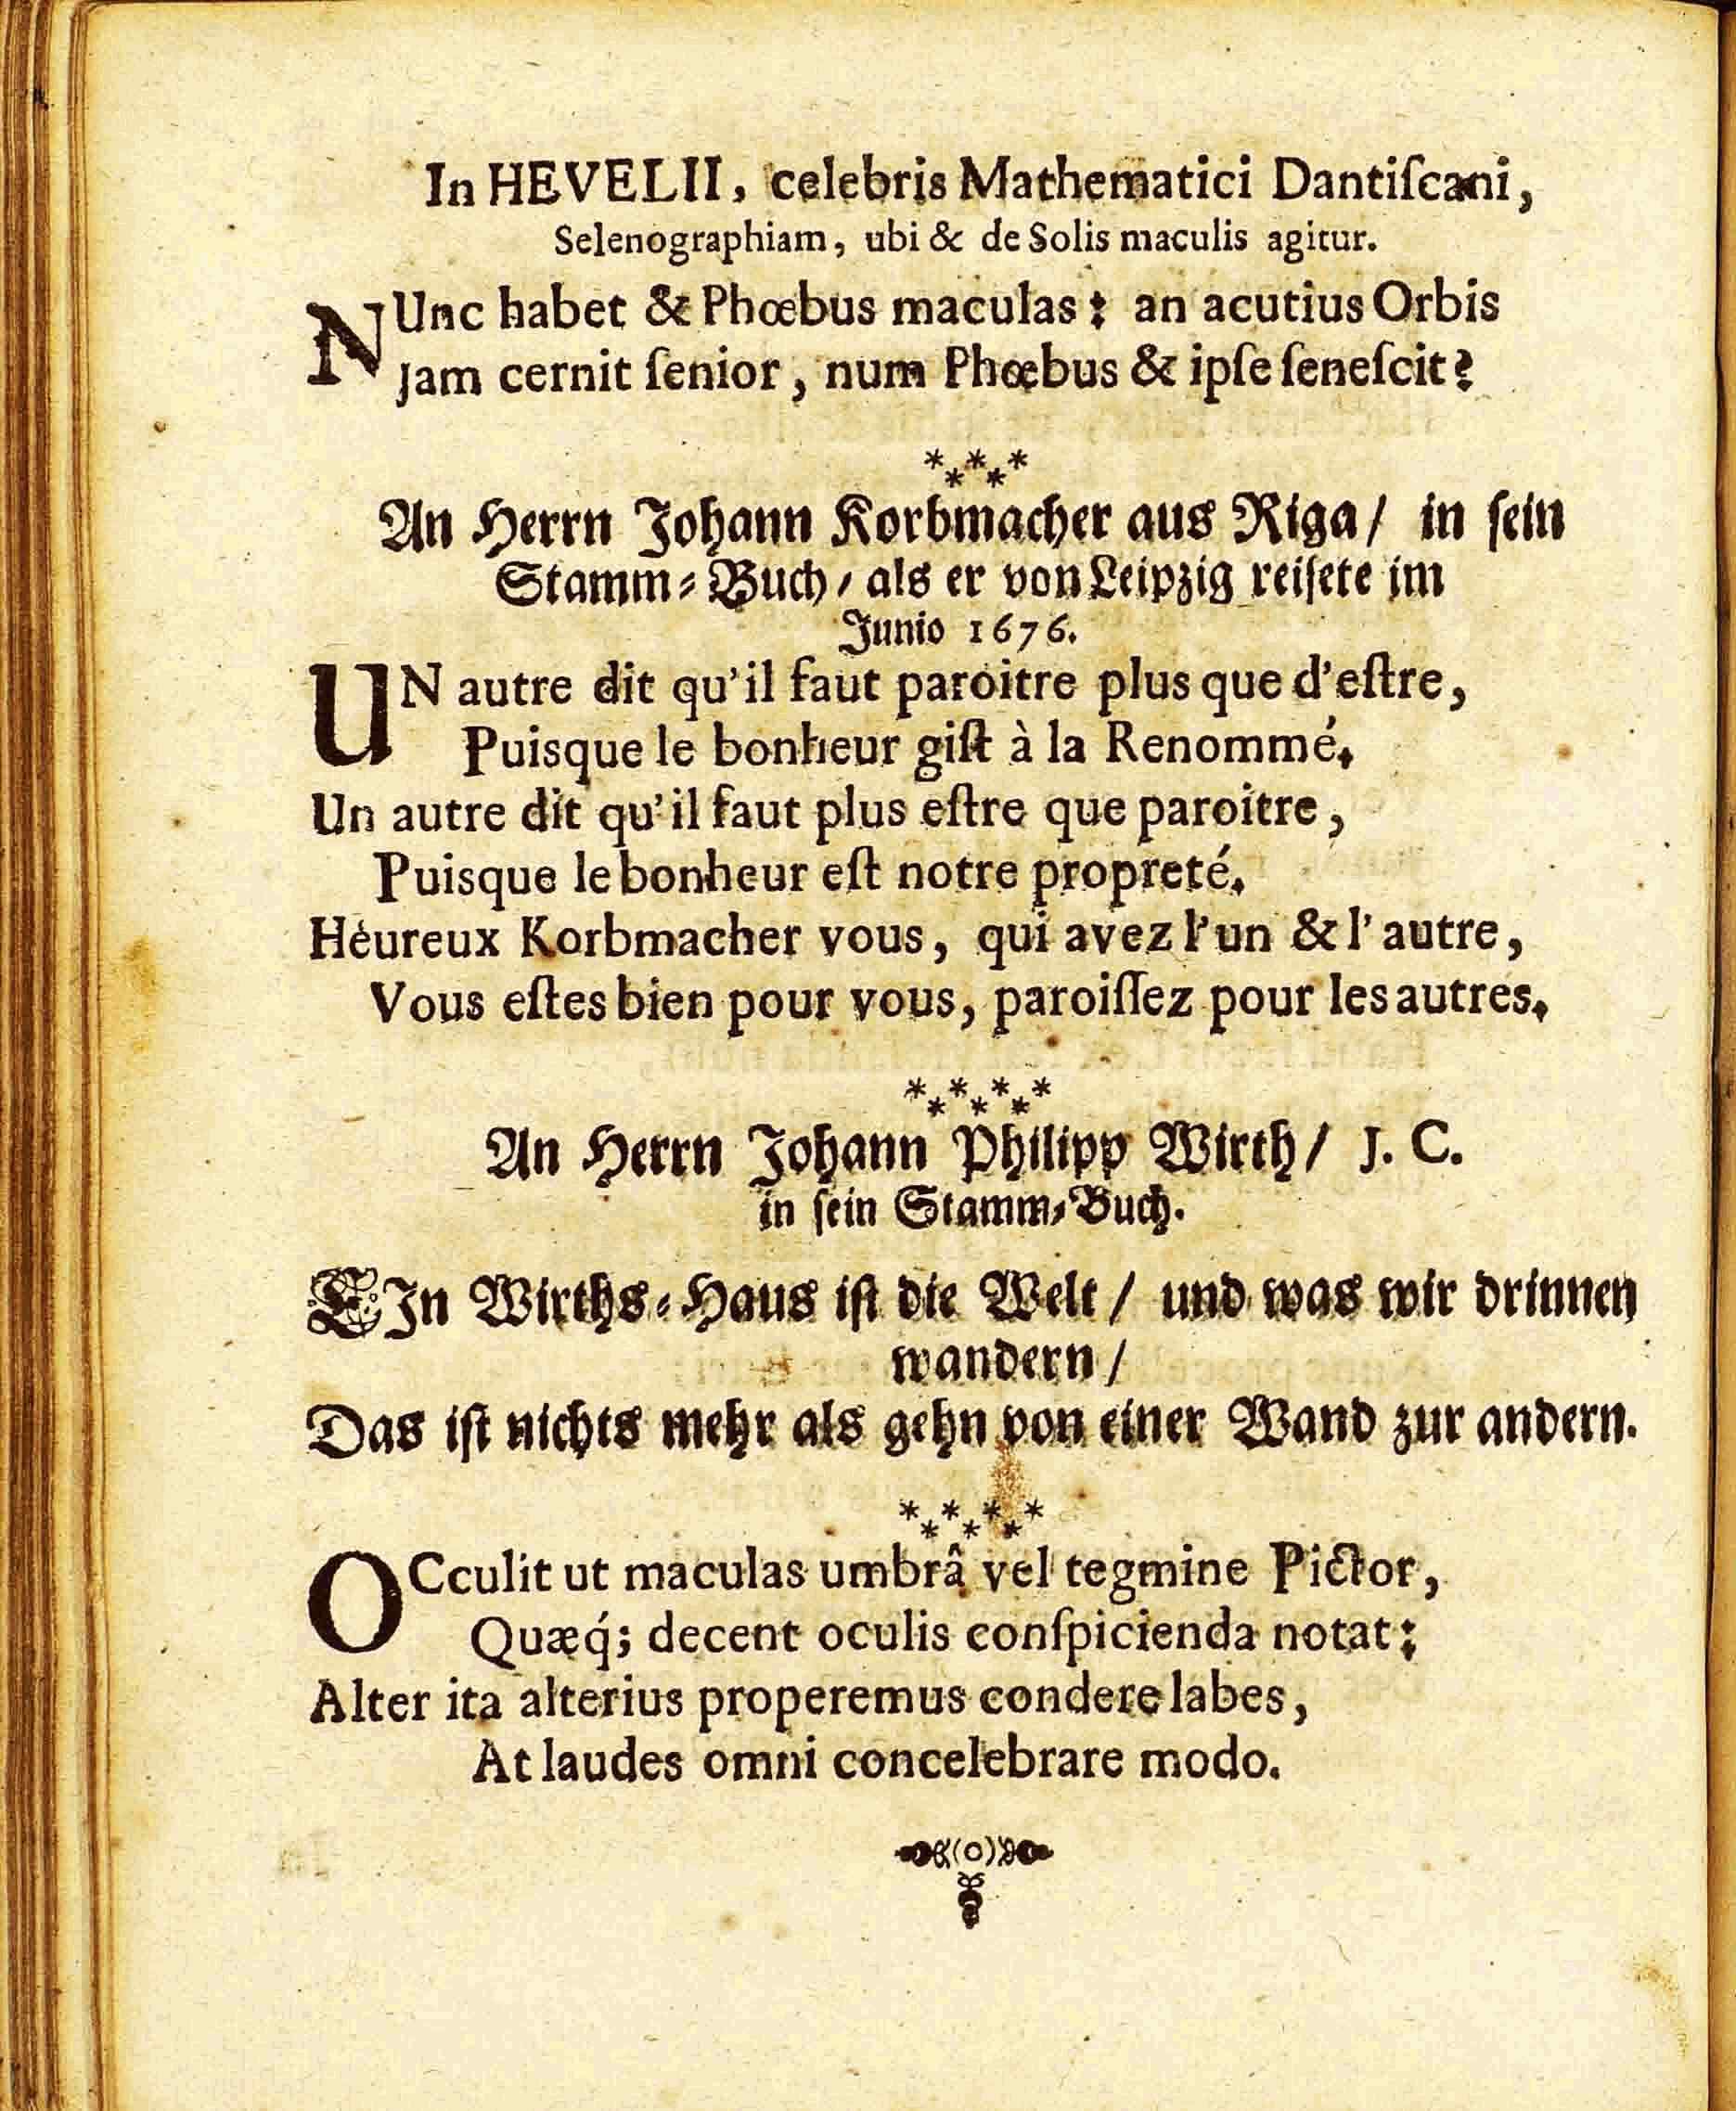 In HEVELII, celebris Mathematici Dantiſcani,
Selenographiam, ubi & de Solis maculis agitur.
NUnc habet & Phœbus maculas: an acutius Orbis
Jam cernit ſenior, num Phœbus & ipſe ſeneſcit?
An Herrn Johann Korbmacher aus Riga/ in ſein
Stamm-Buch/ als er von Leipzig reiſete im
Junio 1676.
UN autre dit qu'il faut paroitre plus que d'eſtre,
Puisque le bonheur giſt à la Renommé.
Un autre dit qu'il faut plus eſtre que paroitre,
Puisque le bonheur eſt notre propreté.
Héureux Korbmacher vous, qui avez l'un & l'autre,
Vous eſtes bien pour vous, paroiſſez pour les autres.
An Herrn Johann Philipp Wirth/ J. C.
in ſein Stamm-Buch.
EIn Wirths-Haus iſt die Welt/ und was wir drinnen
wandern/
Das iſt nichts mehr als gehn von einer Wand zur andern.
OCculit ut maculas umbrâ vel tegmine Pictor,
Quæq́; decent oculis conſpicienda notat:
Alter ita alterius properemus condere labes,
At laudes omni concelebrare modo.